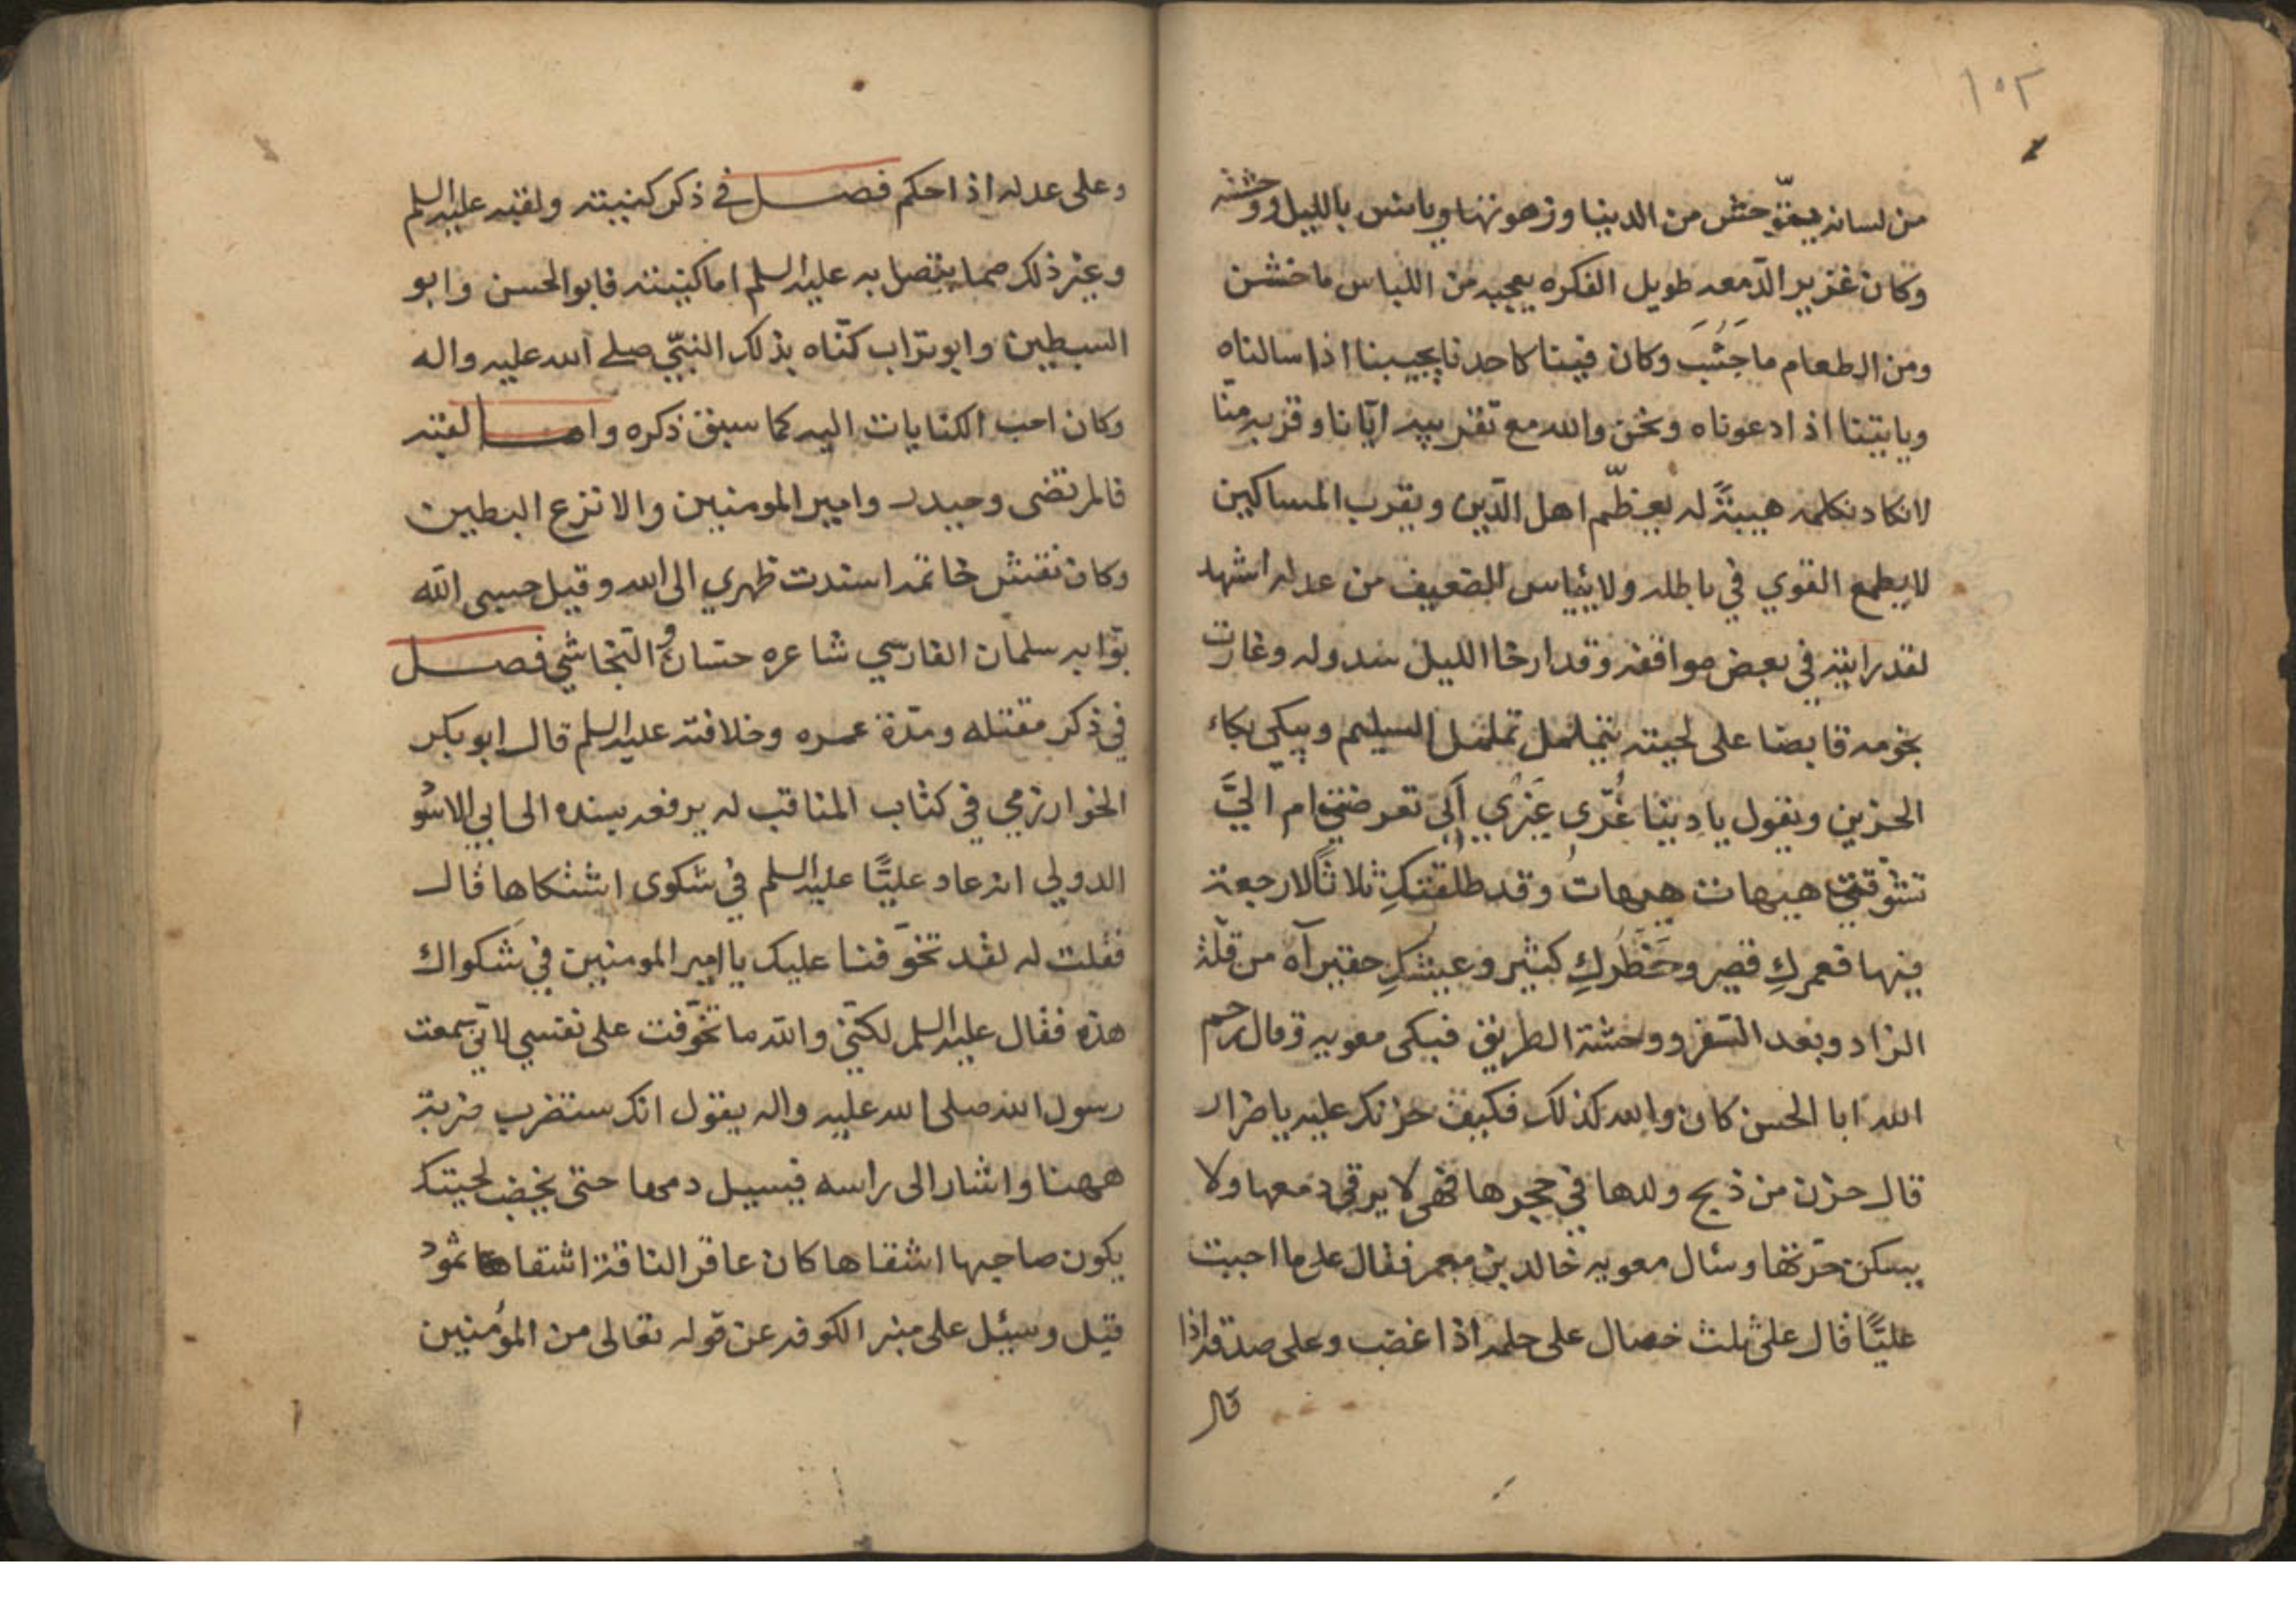 ١٠٢
من لسانه يتوحش من الدنيا وزهوتها ويانس بالليل ووحشته
وكان غزير الدمعه طويل الفكره يعجبه من اللباس ما خشن
ومن الطعام ما جَشُبَ وكان فينا كاحدنا يجيبنا اذا سالناه
وياتينا اذا دعوناه ونحن والله مع تقريبه ايّانا وقربه منّا
لانكاد نكلمه هيبةً له يعظّم اهل الدّين ويقرب المساكين
لا يطمع القوي في باطله ولا يئياس الضعيف من عدله اشهد
لقد رايته في بعض مواقفه وقد ارخا الليل سدوله وغارت
نجومه قابضا على لحيته يتململ تململ السليم ويبكي بكاء
الحزين ويقول يا دنيا غُرّى غَيْرِي اَلِى تعرضتي ام اليَّ
تشوّقتي هيهات هيهات وقد طلقتكِ ثلاثًا لارجعة
فيها فعمركِ قصير وخَطَركِ كبير وعيشكِ حقير آه من قلّة
الزاد وبعد السّفر ووحشة الطريق فبكى معويه وقال رحم
الله ابا الحسن كان والله كذلك فكيف حزنك عليه يا ضرار
قال حزن من ذبح ولدها في حجرها فهي لا يرقى دمعها ولا
يسكن حرّتها وسئال معويه خالد بن معمر فقال على ما احببت
عليًّا قال على ثلث خصال على حلمه اذا غضب وعلى صدقه اذا
قال
وعلى عدله اذا حكم فصل في ذكر كنيته ولقبه عليه السلم
وغير ذلك مما يتصل به عليه السلم اما كنيته فابو الحسن وابو
السبطين وابو تراب كنّاه بذلك النبيّ صلى الله عليه واله
وكان احب الكنايات اليه كما سبق ذكره واما لقبه
فالمرتضى وحيدر وامير المومنين والانزع البطين
وكان نقش خاتمه اسندت ظهري الى الله وقيل حسبى الله
بوّابه سلمان الفارسي شاعره حسان و النّجاشي فصل
في ذكر مقتله ومدّة عمره وخلافته عليه السلم قال ابو بكر
الخوارزمي في كتاب المناقب له يرفعه بسنده الى ابي الاسود
الدولي انه عاد عليًّا عليه السلم في شكوى اشتكاها قال
فقلت له لقد تخوّفنا عليك يا امير المومنين في شكواك
هذه فقال عليه السلم لكنّي والله ما تخوّفت على نفسي لانّي سمعت
رسول الله صلى الله عليه واله يقول انك ستضرب ضربة
ههنا واشار الى راسه فيسيل دمها حتى يخضب لحيتك
يكون صاحبها اشقاها كان عاقر الناقة اشقاها ثمود
قيل وسيئل على منبر الكوفه عن قوله تعالى من المؤمنين